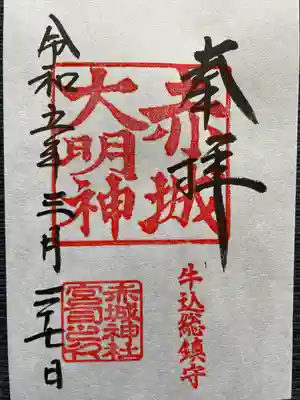 奉拝
赤城
大明神
牛込総鎮守
赤城神社
宮司之印
令和五年三月二十七日